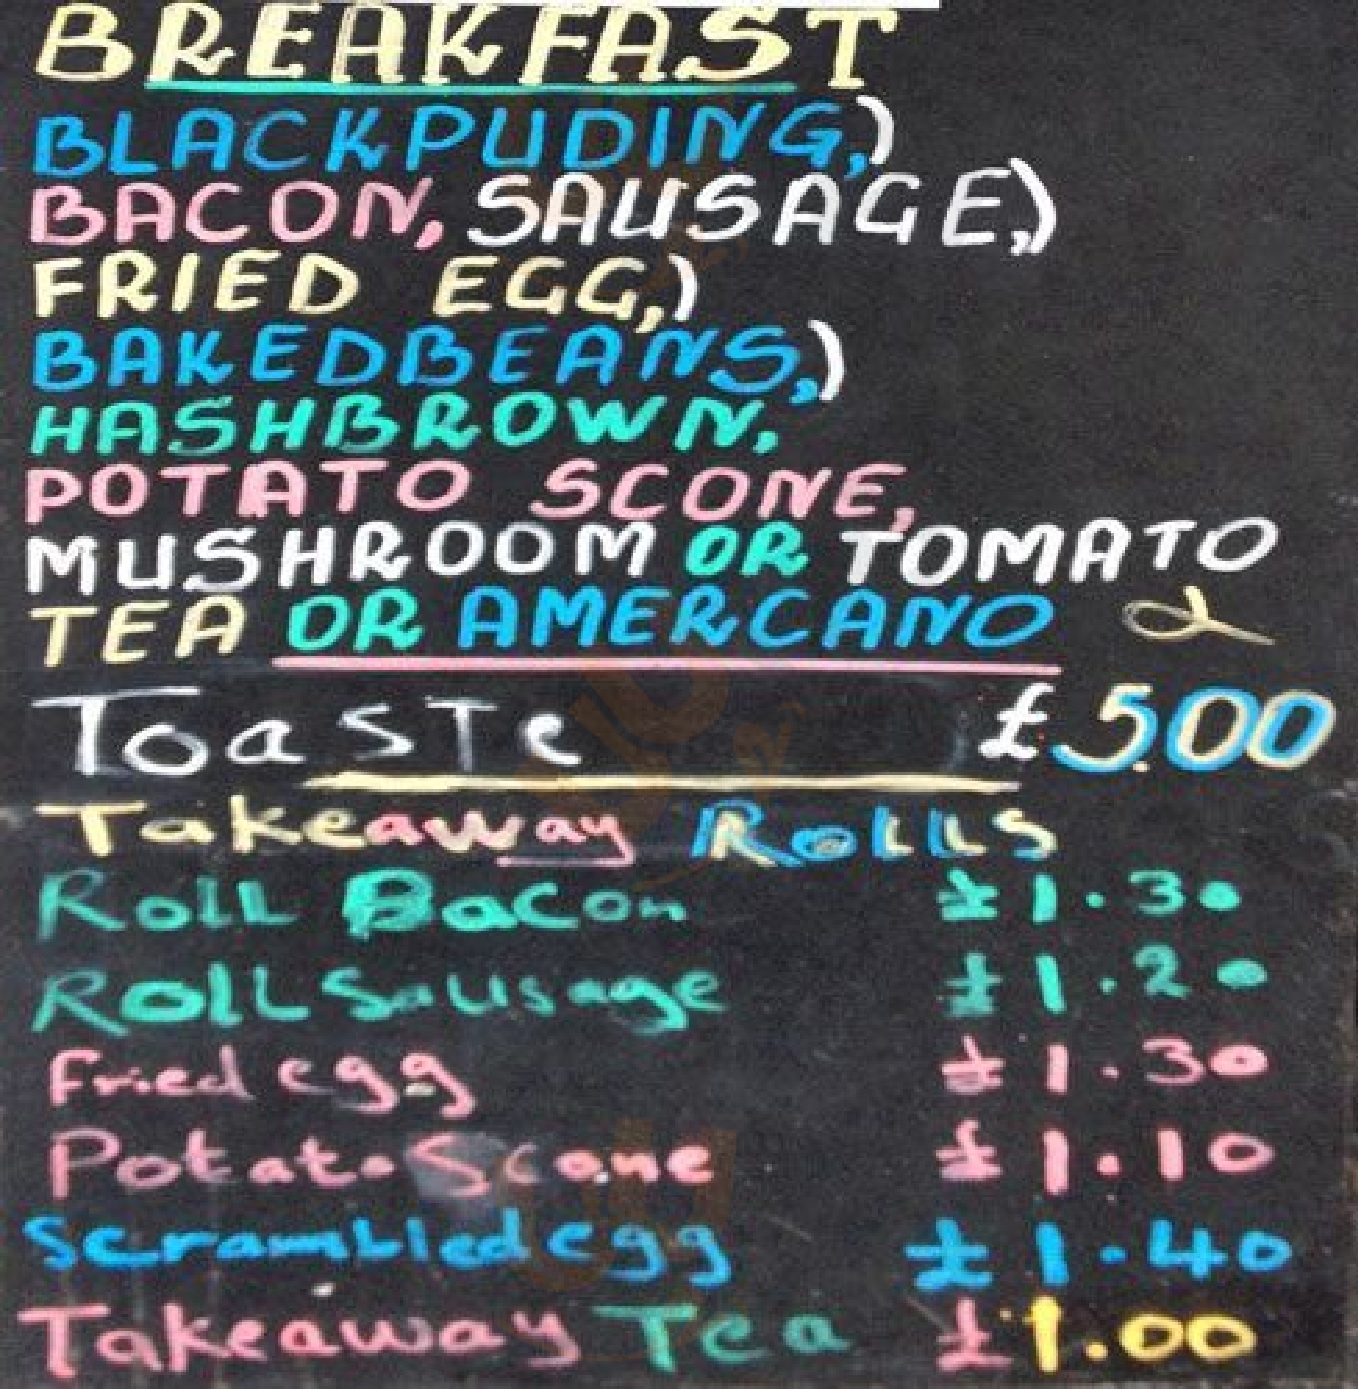 BREAKFAST
BLACKPUDING,)
BACON, SAUSAGE,)
FRIED EGG,)
BAKEDBEANS,)
HASHBROWN,
POTATO SCONE,
MUSHROOM OR TOMATO
TEA OR AMERCANO &
Toaste £5.00
Takeaway Rolls
Roll Bacon £1.30
Roll Sausage £1.20
Fried egg £1.30
Potato Scone £1.10
Scrambled egg £1.40
Takeaway Tea £1.00